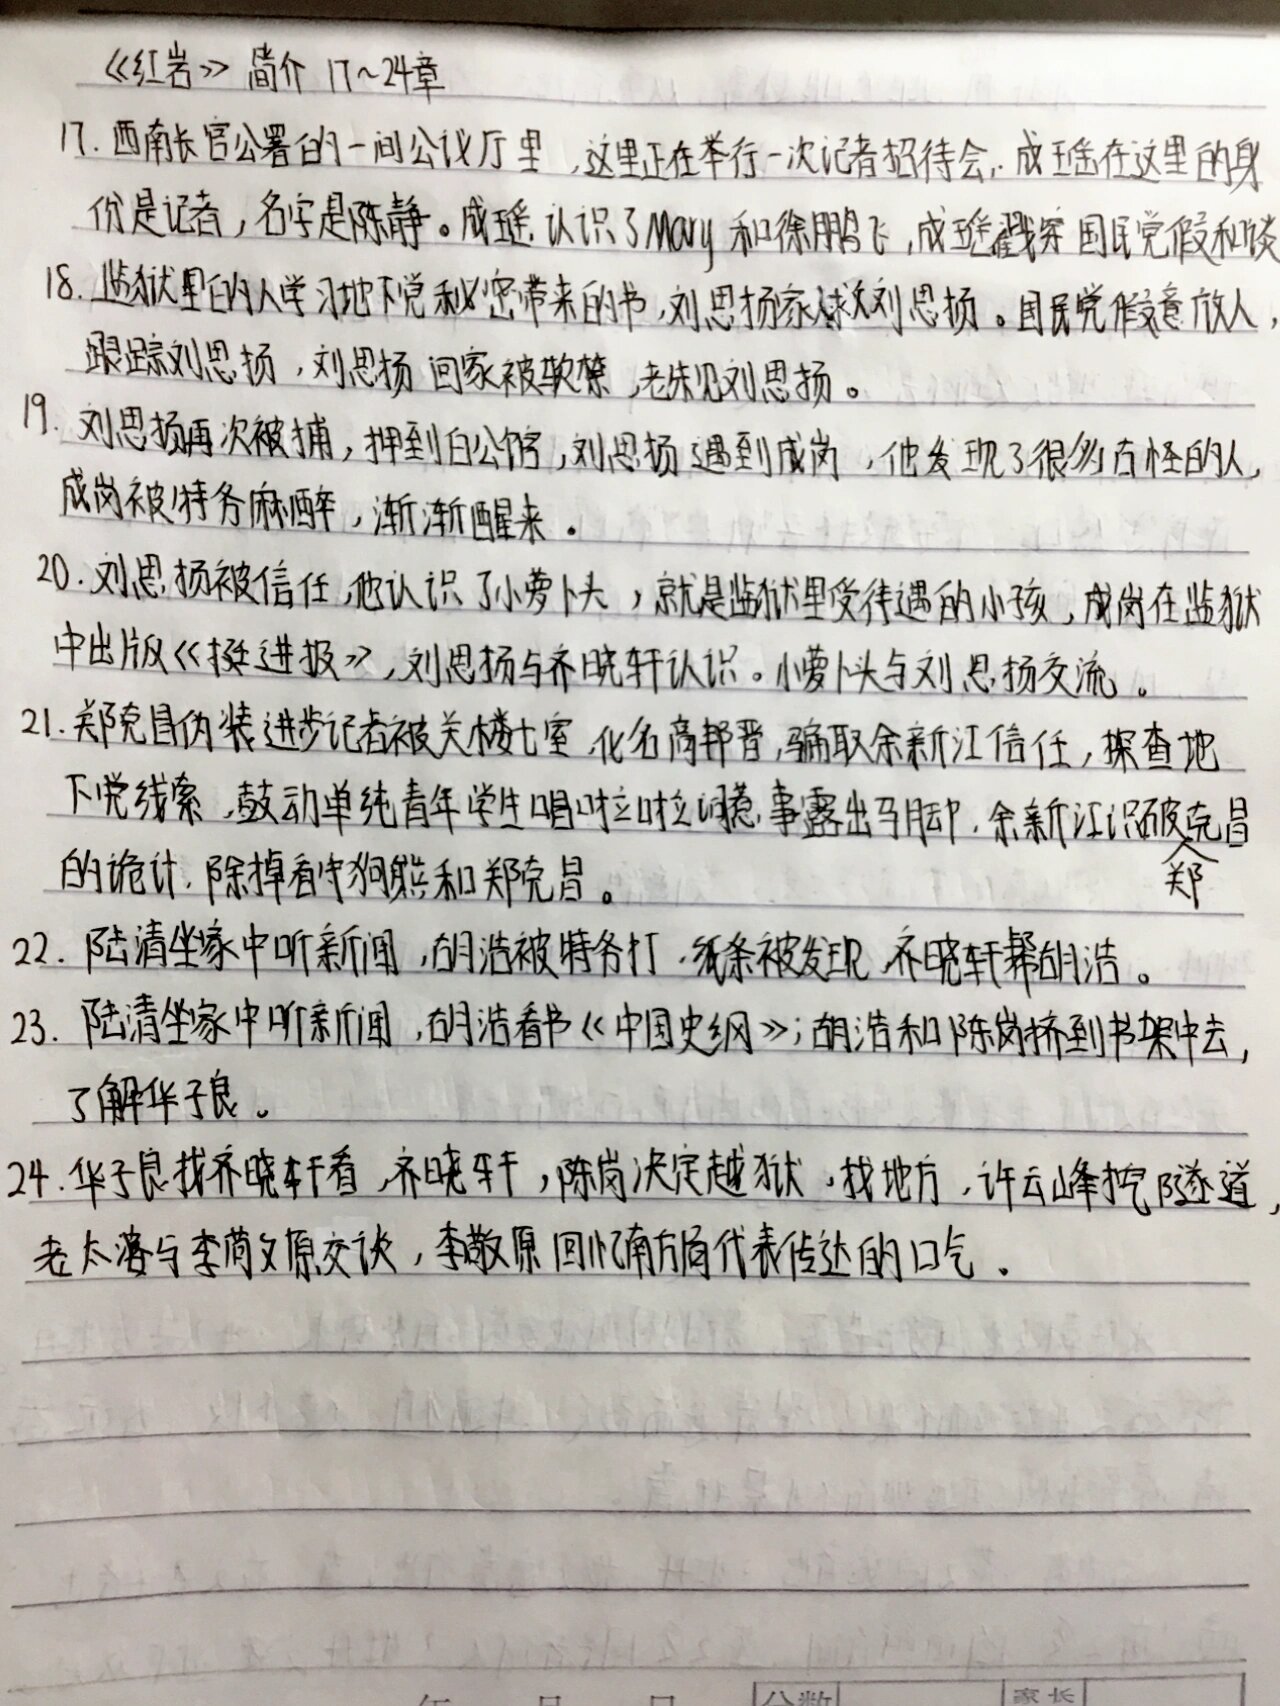 《红岩》简介 17~24章
17. 西南长官公署的一间公议厅里,这里正在举行一次记者招待会,成瑶在这里的身
份是记者,名字是陈静。成瑶认识了Mary和徐鹏飞,成瑶戳穿国民党假和谈
18. 监狱里的人学习地下党秘密带来的书,刘思扬家人救刘思扬。国民党假意放人,
跟踪刘思扬,刘思扬回家被软禁,老朱见刘思扬。
19. 刘思扬再次被捕,押到白公馆,刘思扬遇到成岗,他发现了很多古怪的人,
成岗被特务麻醉,渐渐醒来。
20. 刘思扬被信任,他认识了小萝卜头,就是监狱里受待遇的小孩,成岗在监狱
中出版《挺进报》,刘思扬与齐晓轩认识。小萝卜头与刘思扬交流。
21. 郑克昌伪装进步记者被关楼七室,化名高邦晋,骗取余新江信任,探查地
下党线索,鼓动单纯青年学生唱啦啦词惹事露出马脚,余新江识破郑克昌
的诡计,除掉看守狗熊和郑克昌。
22. 陆清坐家中听新闻,胡浩被特务打,纸条被发现,齐晓轩帮胡浩。
23. 陆清坐家中听新闻,胡浩看书《中国史纲》;胡浩和陈岗挤到书架中去,
了解华子良。
24. 华子良找齐晓轩看,齐晓轩,陈岗决定越狱,找地方,许云峰挖隧道,
老太婆与李敬原交谈,李敬原回忆南方局代表传达的口气。
年 月 日 分数 家长